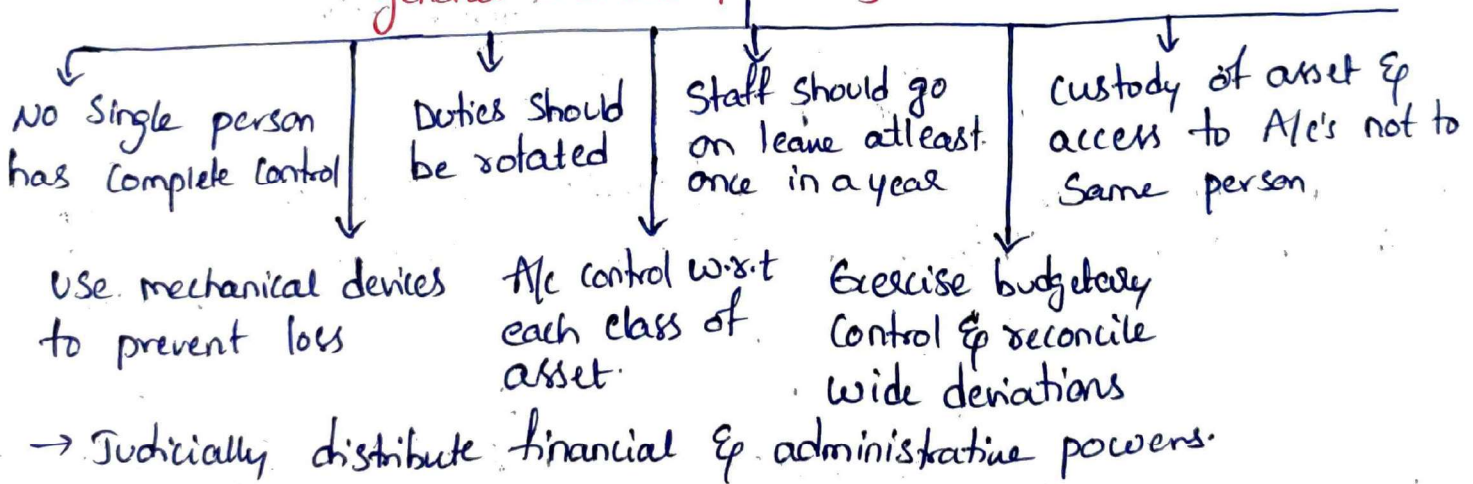 No Single person
has complete control
Duties Should
be rotated
Staff should go
on leave atleast
once in a year
custody of asset &
access to A/c's not to
Same person,
Use mechanical devices
to prevent loss
A/c control w.r.t
each class of
asset.
Exercise budgetary
Control & reconcile
wide deviations
→ Judicially distribute financial & administrative powers.